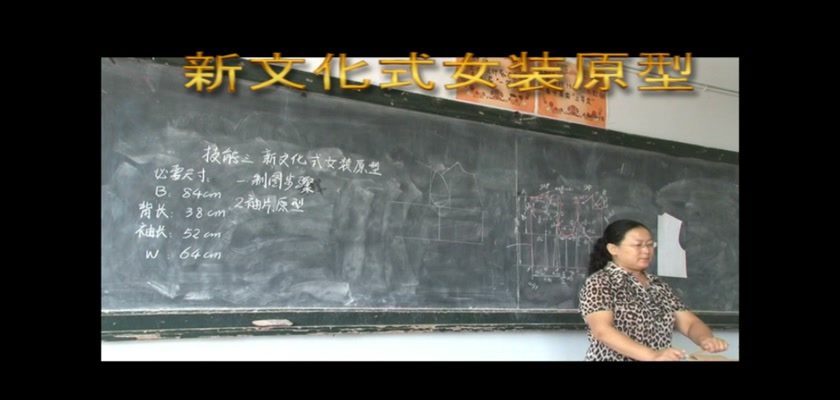 新文化式女装原型
技能三 新文化式女装原型
必要尺寸:
B: 84cm
背长: 38cm
袖长: 52cm
W: 64cm
一制图步骤
2袖片原型